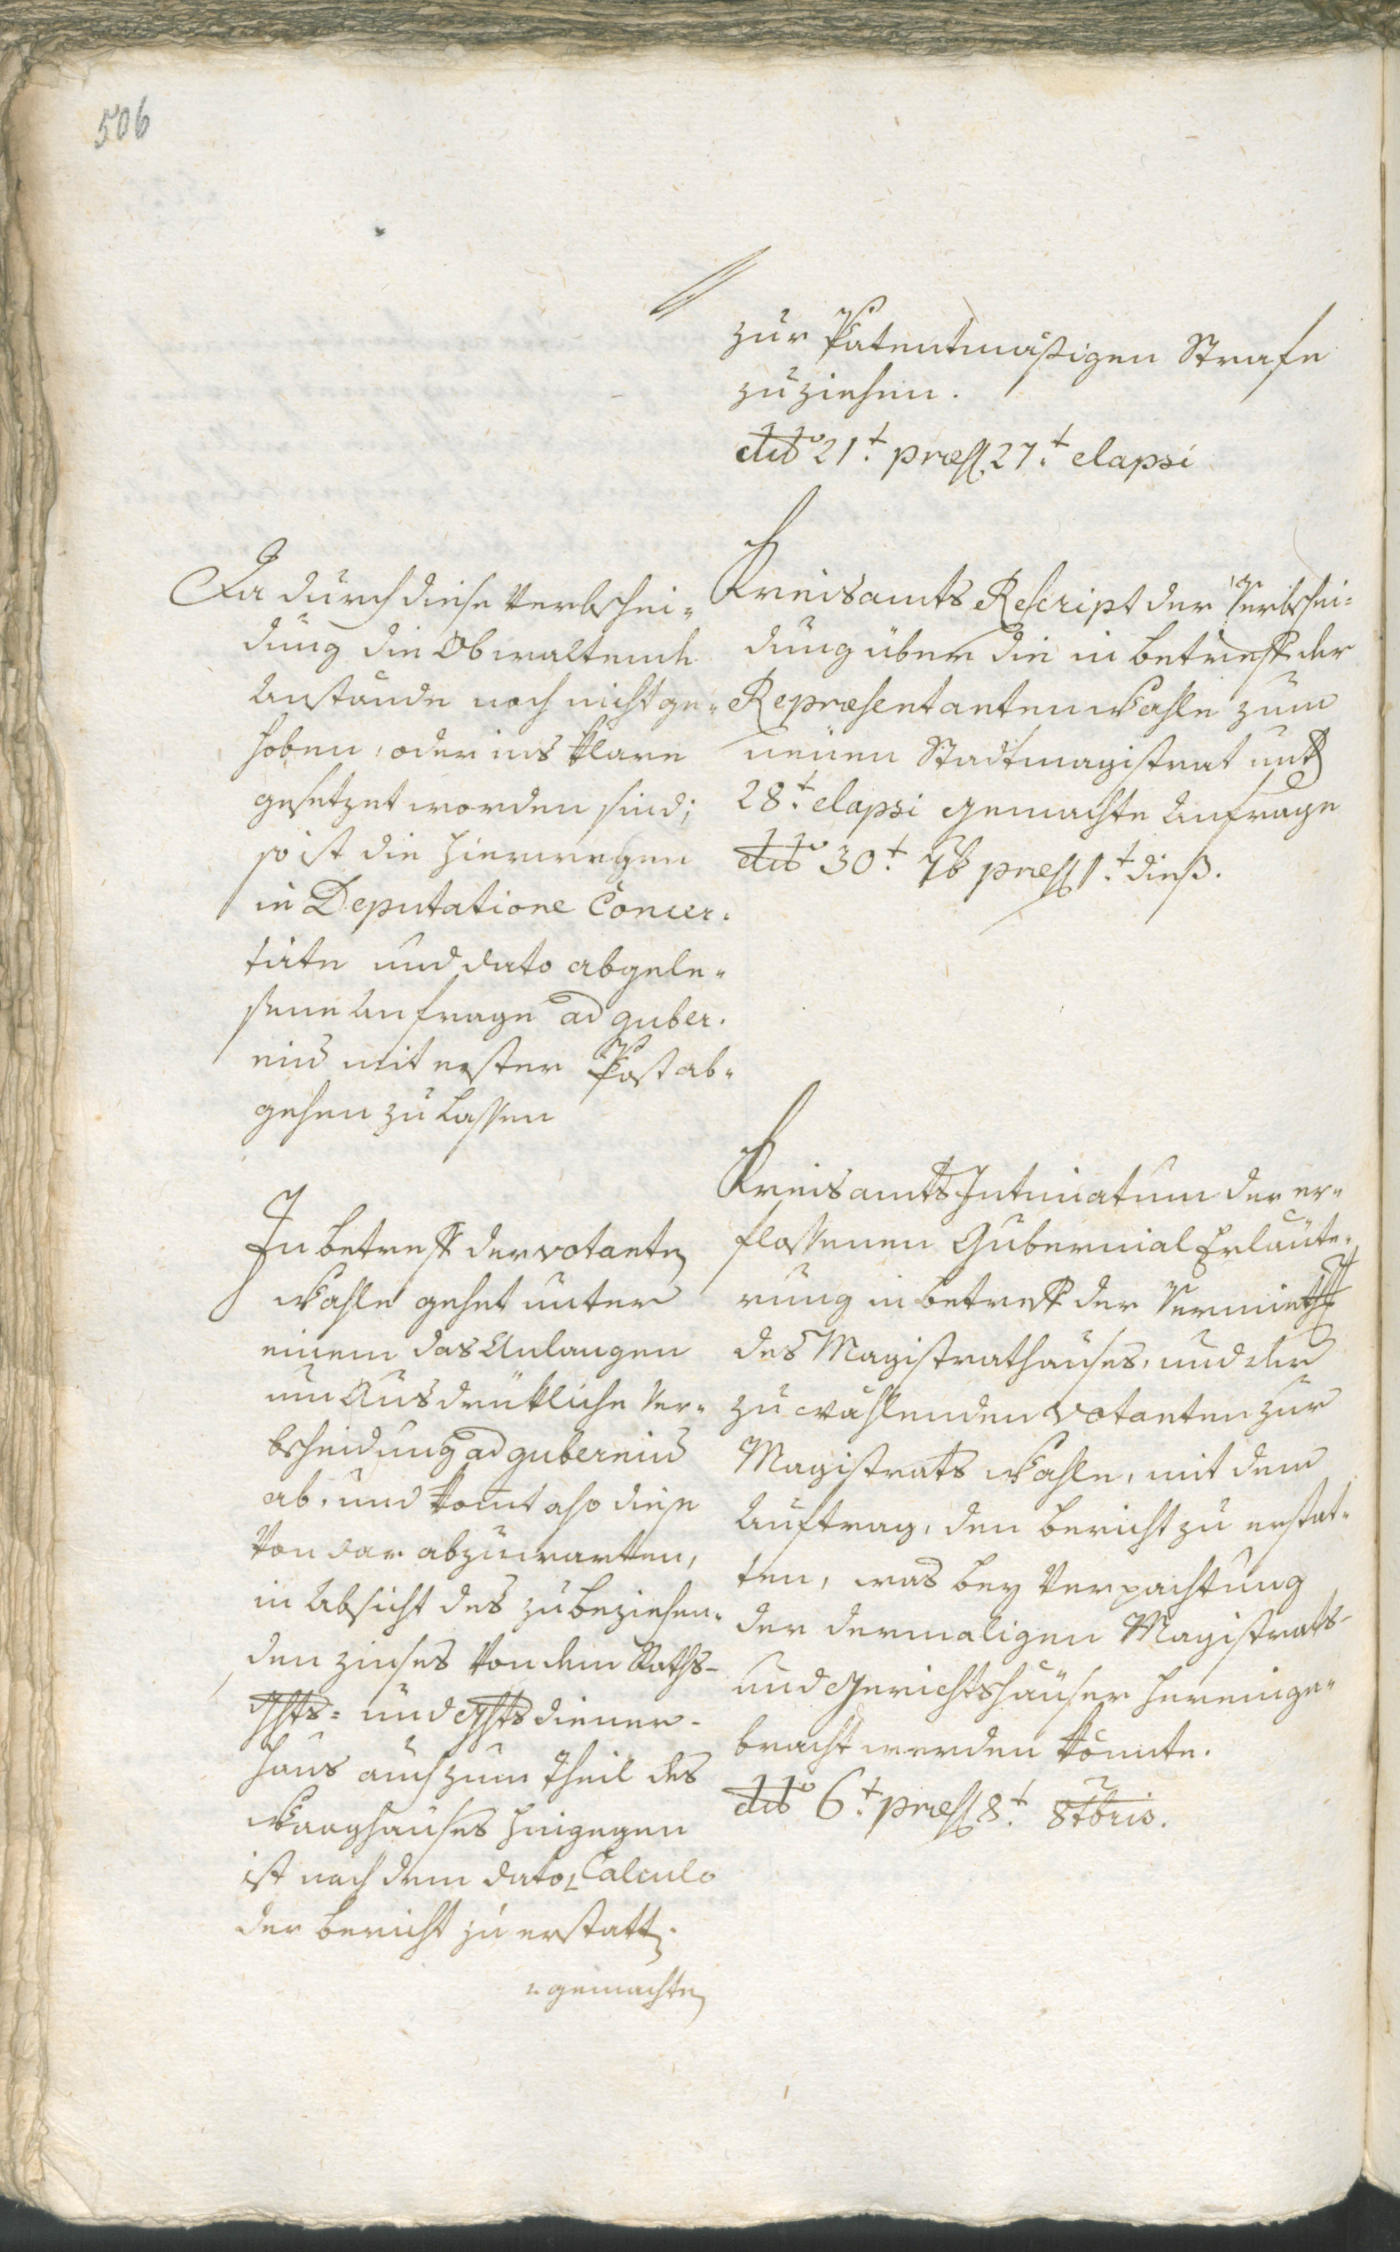 506
zur Patentmäßigen Strafe
zuziehen.
dtto 21t. præs. 27t. elapsi
Da durch diese Verbschei-
dung die Obwaltende
Anstände noch nicht ge-
hoben, oder ins klare
gesetzet worden sind;
so ist die hierwegen
in Deputatione Concer-
tirte und dato abgele-
sene Anfrage ad guber-
niū mit erster Post ab-
gehen zu lassen
Kreisamts Rescript der Verbschei-
dung über die in betreff der
Repræsentanten Wahle zum
neuen Stadtmagistrat unt
28t. elapsi gemachte Anfrage
dtto 30t. 7b præs. 1t. dieß.
In betreff der votanten
Wahle gehet unter
einem das Anlangen
um Ausdrükliche Ver-
bscheidung ad guberniū
ab, und komt also diese
von dar abzuwarten,
in Absicht des zu beziehen-
den zinses von dem Raths-
Ghts- und Ghtsdiener-
haus auch zum Theil des
Waaghauses hingegen
ist nach dem dato Calculo
der bericht zu erstatten.
gemachten
Kreisamts Intimatum der er-
flossenen Gubernial Erläute-
rung in betreff der Vermieth
des Magistrathauses, und der
zu wählenden votanten zur
Magistrats Wahle, mit dem
Auftrag, den bericht zu erstat-
ten, was bey Verpachtung
der dermaligen Magistrats-
und Gerichtshäuser hereinge-
bracht werden könnte.
dtto 6t. præs. 8t. 8tbris.